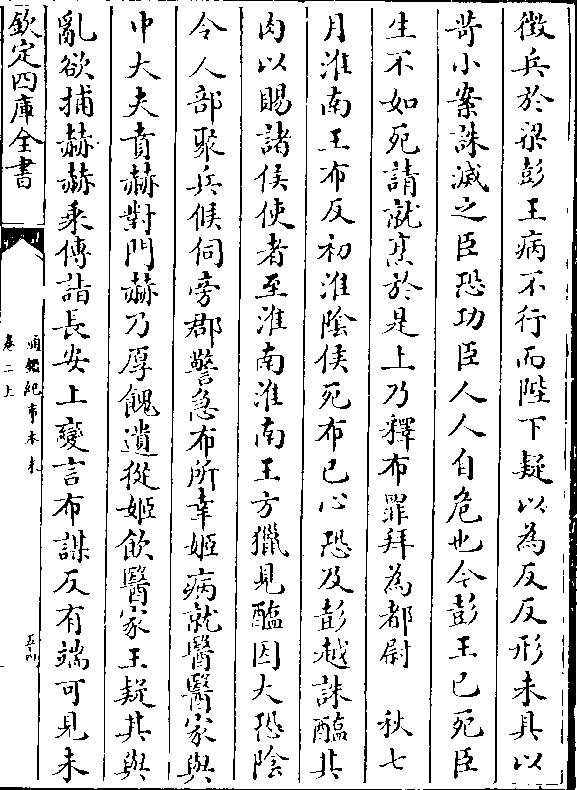 徵兵於梁彭王病不行而陛下疑以為反反形未具以
苛小案誅滅之臣恐功臣人人自危也今彭王已死臣
生不如死請就烹於是上乃釋布罪拜為都尉　秋七
月淮南王布反初淮陰侯死布已心恐及彭越誅醢其
肉以賜諸侯使者至淮南淮南王方獵見醢因大恐陰
令人部聚兵候伺旁郡警急布所幸姬病就醫醫家與
中大夫賁赫對門赫乃厚餽遺從姬飲醫家王疑其與
亂欲捕赫赫乘傳詣長安上變言布謀反有端可見未
欽定四庫全書
通鑑紀事本末
卷二上